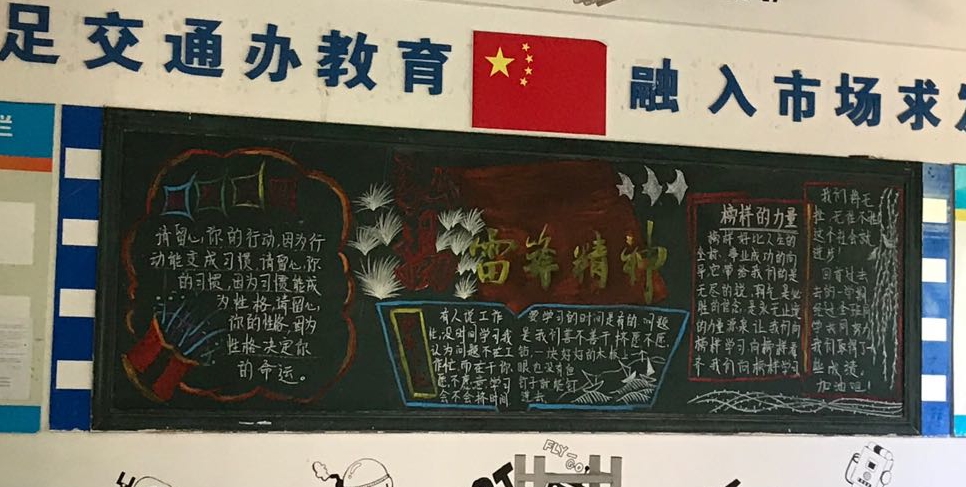 足交通办教育 融入市场求发
栏
请留心你的行动,因为行
动能变成习惯.请留心你
的习惯,因为习惯能成
为性格.请留心
你的性格,因为
性格决定你
的命运。
雷锋精神
有人说工作
忙,没时间学习,我
认为问题不在工
作忙,而在于你
愿不愿意学习
会不会挤时间
要学习的时间是有的,问题
是我们善不善于挤,愿不愿
钻.一块好好的木板上
眼也没有但
钉子就能钉
进去
榜样的力量
榜样好比人生的
坐标,事业成功的向
导,它带给我们的是
无尽的
胜的信念,是永无止境
的力量源泉.让我们向
榜样学习,向榜样看
齐,我们向榜样学习
这个社会就
进步!
回首过去
学我同努力
我们取得了一
些成绩,
加油吧!
FLY-
GO'